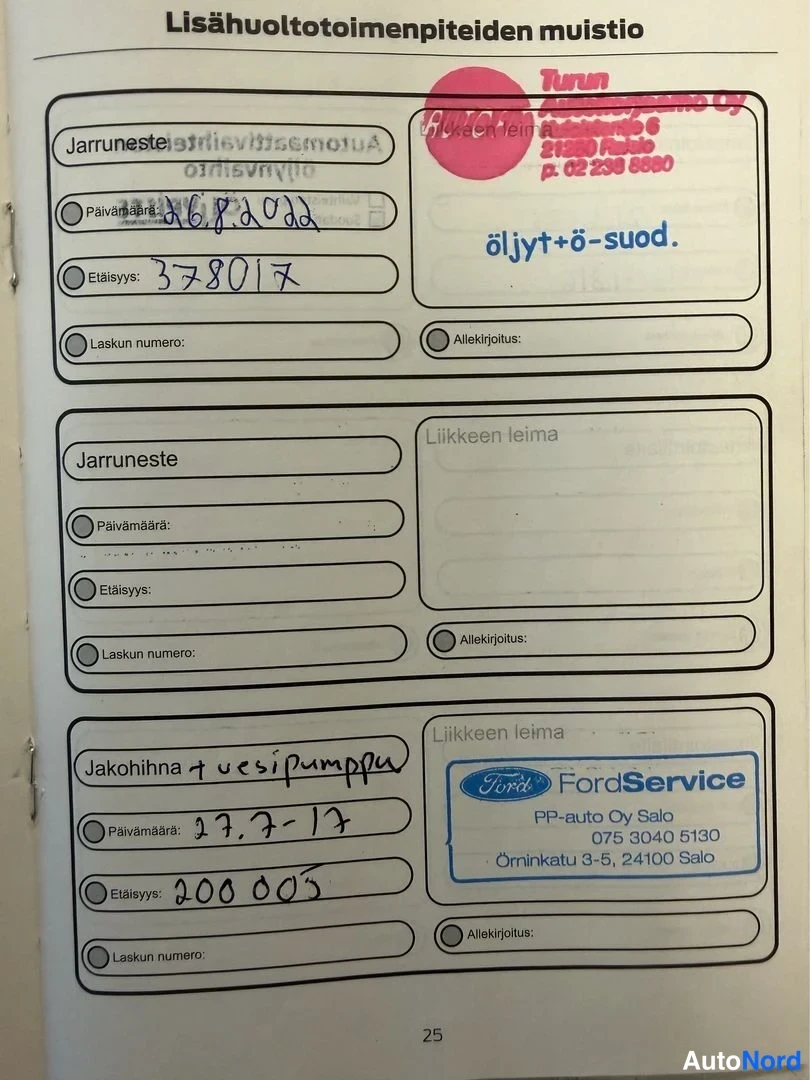 Lisähuoltotoimenpiteiden muistio
Jarruneste
Päivämäärä: 26.8.2022
Etäisyys: 378017
Laskun numero:
Liikkeen leima
Turun
Oy
6
21280 Raisio
p. 02 238 8880
öljyt+ö-suod.
Allekirjoitus:
Jarruneste
Päivämäärä:
Etäisyys:
Laskun numero:
Liikkeen leima
Allekirjoitus:
Jakohihna + vesipumppu
Päivämäärä: 27.7-17
Etäisyys: 200 005
Laskun numero:
Liikkeen leima
Ford FordService
PP-auto Oy Salo
075 3040 5130
Örninkatu 3-5, 24100 Salo
Allekirjoitus:
25
AutoNord